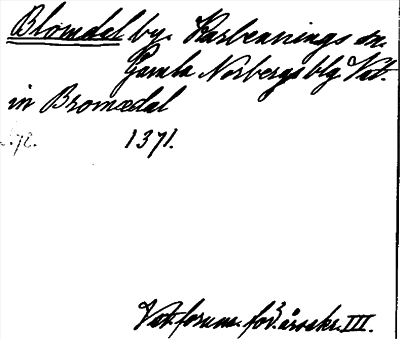 Blomdal by. Karbennings sn.
Gamla Norbergs blg Vstm.
in Bromædal
1371.
Vstmforumförårsskr. III.